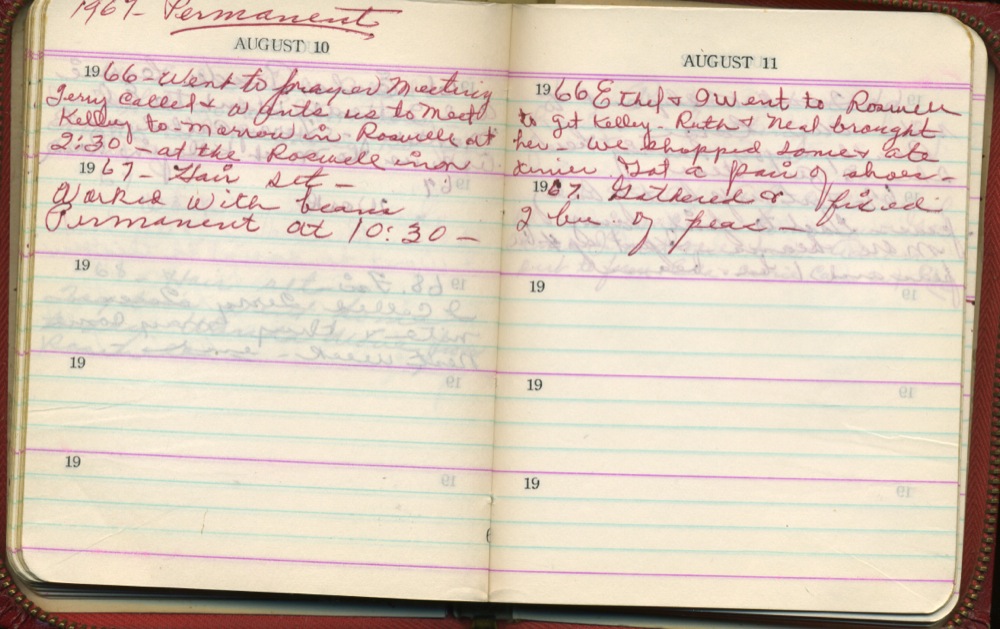 1967- Permanent
AUGUST 10
1966 - Went to prayer Meeting
Jerry called & wants us to Meet
Kelley to-morrow in Roswell at
2:30 - at the Roswell inn
1967 - Hair set -
Worked with beans
Permanent at 10:30 -
19
19
19
AUGUST 11
1966 Ethel & I Went to Roswell
to get Kelley - Ruth & Neal brought
her - We shopped some & ate
dinner. Got a pair of shoes -
1967. Gathered & fixed
2 bu. of peas -
19
19
19